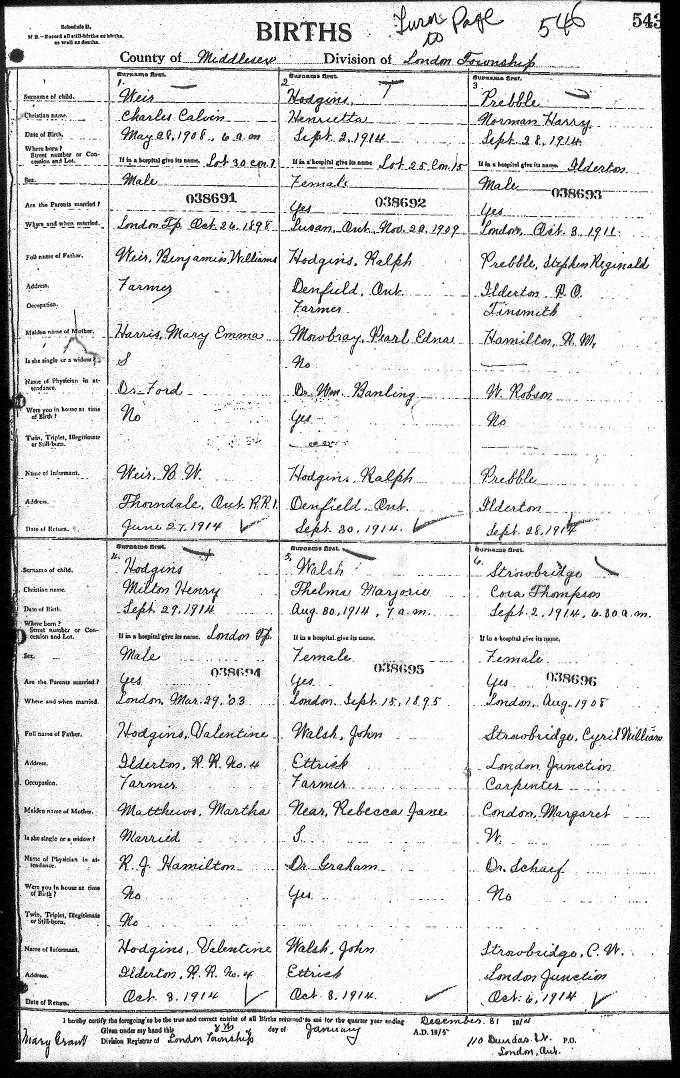 Schedule B.
N B.—Record all still-births as births,
as well as deaths.
BIRTHS
Turn Page
to
546
543
County of Middlesex Division of London Township
Surname first. Surname first. Surname first.
1. 2. 3
Surname of child. Weir Hodgins, Prebble
Christian name. Charles Calvin Henrietta Norman Harry
Date of Birth. May 28, 1908, 6 a.m Sept. 2, 1914 Sept. 28, 1914
Where born?
Street number or Con-
cession and Lot. If in a hospital give its name. Lot 30 con. 7 If in a hospital give its name Lot 25 Con. 15 If in a hospital give its name. Ilderton
Sex. Male Female Male
038691 038692 038693
Are the Parents married? Yes Yes
Where and when married. London Tp. Oct 26, 1898 Ont. Nov. 22, 1909 London, Oct. 8, 1911
Full name of Father. Weir, Benjamin Williams Hodgins, Ralph Prebble, Stephen Reginald
Address. Farmer Denfield, Ont. Ilderton P.O.
Occupation. Farmer Tinsmith
Maiden name of Mother. Harris, Mary Emma Mowbray, Pearl Edna Hamilton, N. M.
Is she single or a widow? S No
Name of Physician in at-
tendance. Dr. Ford Dr. Wm. Banting W. Robson
Were you in house at time
of Birth? No Yes No
Twin, Triplet, Illegitimate
or Still-born.
Name of Informant. Weir, B. W. Hodgins, Ralph Prebble
Address. Thorndale, Ont. R.R.1. Denfield, Ont. Ilderton
Date of Return. June 27, 1914 Sept. 30, 1914. Sept. 28, 1914
Surname first. Surname first. Surname first.
4. 5. 6.
Surname of child. Hodgins Walsh Strowbridge
Christian name. Milton Henry Thelma Marjorie Cora Thompson
Date of Birth. Sept. 29, 1914 Aug. 30, 1914, 7 a.m. Sept. 2, 1914, 6.30 a.m.
Where born?
Street number or Con-
cession and Lot. If in a hospital give its name. London Tp. If in a hospital give its name. If in a hospital give its name.
Sex. Male Female Female
038694 038695 038696
Are the Parents married? Yes Yes Yes
Where and when married. London, Mar. 29, '03 London, Sept. 15, 1895 London, Aug. 1908
Full name of Father. Hodgins, Valentine Walsh, John Strowbridge, Cyril William
Address. Ilderton, R.R. No. 4 Ettrick London Junction
Occupation. Farmer Farmer Carpenter
Maiden name of Mother. Matthews, Martha Near, Rebecca Jane Condon, Margaret
Is she single or a widow? Married S. W.
Name of Physician in at-
tendance. R. J. Hamilton Dr. Graham Dr. Schaef
Were you in house at time
of Birth? No Yes No
Twin, Triplet, Illegitimate
or Still-born. No
Name of Informant. Hodgins, Valentine Walsh, John Strowbridge, C. W.
Address. Ilderton, R.R. No. 4 Ettrick London Junction
Date of Return. Oct. 8, 1914 Oct. 8, 1914. Oct. 6, 1914
I hereby certify the foregoing to be the true and correct entries of all Births returned to me for the quarter year ending December 31 1914
Given under my hand this 8th day of January A.D. 1915
Mary Grant Division Registrar of London Township 110 Dundas St. P.O.
London, Ont.